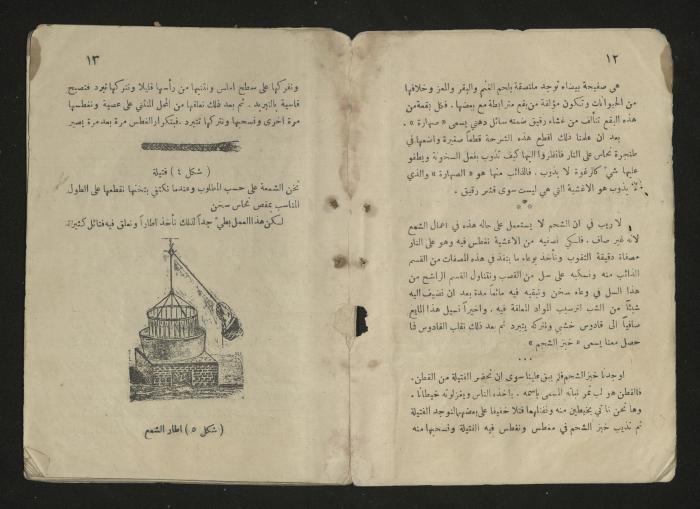 ١٢
هي صفيحة بيضاء توجد ملتصقة بلحم الغنم والبقر والمعز وخلافها
من الحيوانات وتتكون مؤلفة من بقع مترابطة مع بعضها . فكل بقعة من
هذه البقع تتألف من غشاء رقيق ضمنه سائل دهني يسمى « صهارة » .
بعد ان علمنا ذلك اقطع هذه الشرحة قطعاً صغيرة واضعها في
طنجرة نحاس على النار فانظروا اليها كيف تذوب بفعل السخونة ويطفو
عليها شيء كالرغوة لا يذوب . فالذائب منها هو « الصهارة » والذي
لا يذوب هو الاغشية التي هي ليست سوى قشر رقيق .
***
لا ريب في ان الشحم لا يستعمل على حاله هذه في اعمال الشمع
لانه غير صاف . فلكي نصفيه من الاغشية نغطس فيه وهو على النار
مصفاة دقيقة الثقوب ونأخذ بوعاء ما ينفذ في هذه المصفاة من القسم
الذائب منه ونسكبه على سل من القصب ونتناول القسم الراشح من
هذا السل في وعاء سخن ونبقيه فيه مائعاً مدة بعد ان نضيف اليه
شيئاً من الشب لترسيب المواد المعلقة فيه ، واخيراً نسيل هذا المايع
صافياً الى قادوس خشبي ونتركه يتبرد ثم بعد ذلك نقلب القادوس فما
حصل معنا يسمى « خبز الشحم »
...
اوجدنا خبز الشحم فلم يبق علينا سوى ان نحضر الفتيلة من القطن .
فالقطن هو لب ثمر نباته المسمى بإسمه . يأخذه الناس ويغزلونه خيطاناً .
وها نحن نأتي بخيطين منه ونفتلهما فتلا خفيفاً على بعضهما لنوجد الفتيلة
ثم نذيب خبز الشحم في مغطس ونغطس فيه الفتيلة ونسحبها منه
١٣
ونفركها على سطح املس ونثنيها من رأسها قليلا ونتركها تبرد فتصبح
قاسية بالتبريد . ثم بعد ذلك نعلقها من المحل المنثني على عصية ونغطسها
مرة اخرى ونسحبها ونتركها تتبرد . فبتكرار الغطس مرة بعد مرة يصير
( شكل ٤ ) فتيلة
ثخن الشمعة على حسب المطلوب وعندما نكتفي بثخنها نقطعها على الطول
المناسب بمقص نحاس سخن
لكن هذا العمل بطيء جداً لذلك نأخذ اطاراً ونعلق فيه فتائل كثيرات
( شكل ٥ ) اطار الشمع